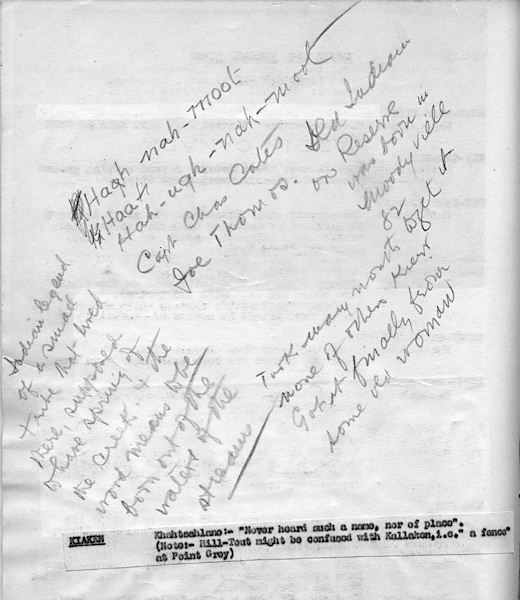 Haqh nah-moot
Haat
Hah-ugh-nah-moot
Capt Chas Cates
Joe Thomas. Old Indian
on Reserve
was born in
Moodyville
82
Took many months to get it
none of others knew
Got it finally from
some old woman
Indian legend
of a small
tribe that lived
there, supposed
to have sprung of
the creek. & the
word means to be
born out of the
waters of the
stream
KIAKEN
Khahtsahlano:- "Never heard such a name, nor of place".
(Note:- Hill-Tout might be confused with Kullaken,i.e." a fence"
at Point Grey)